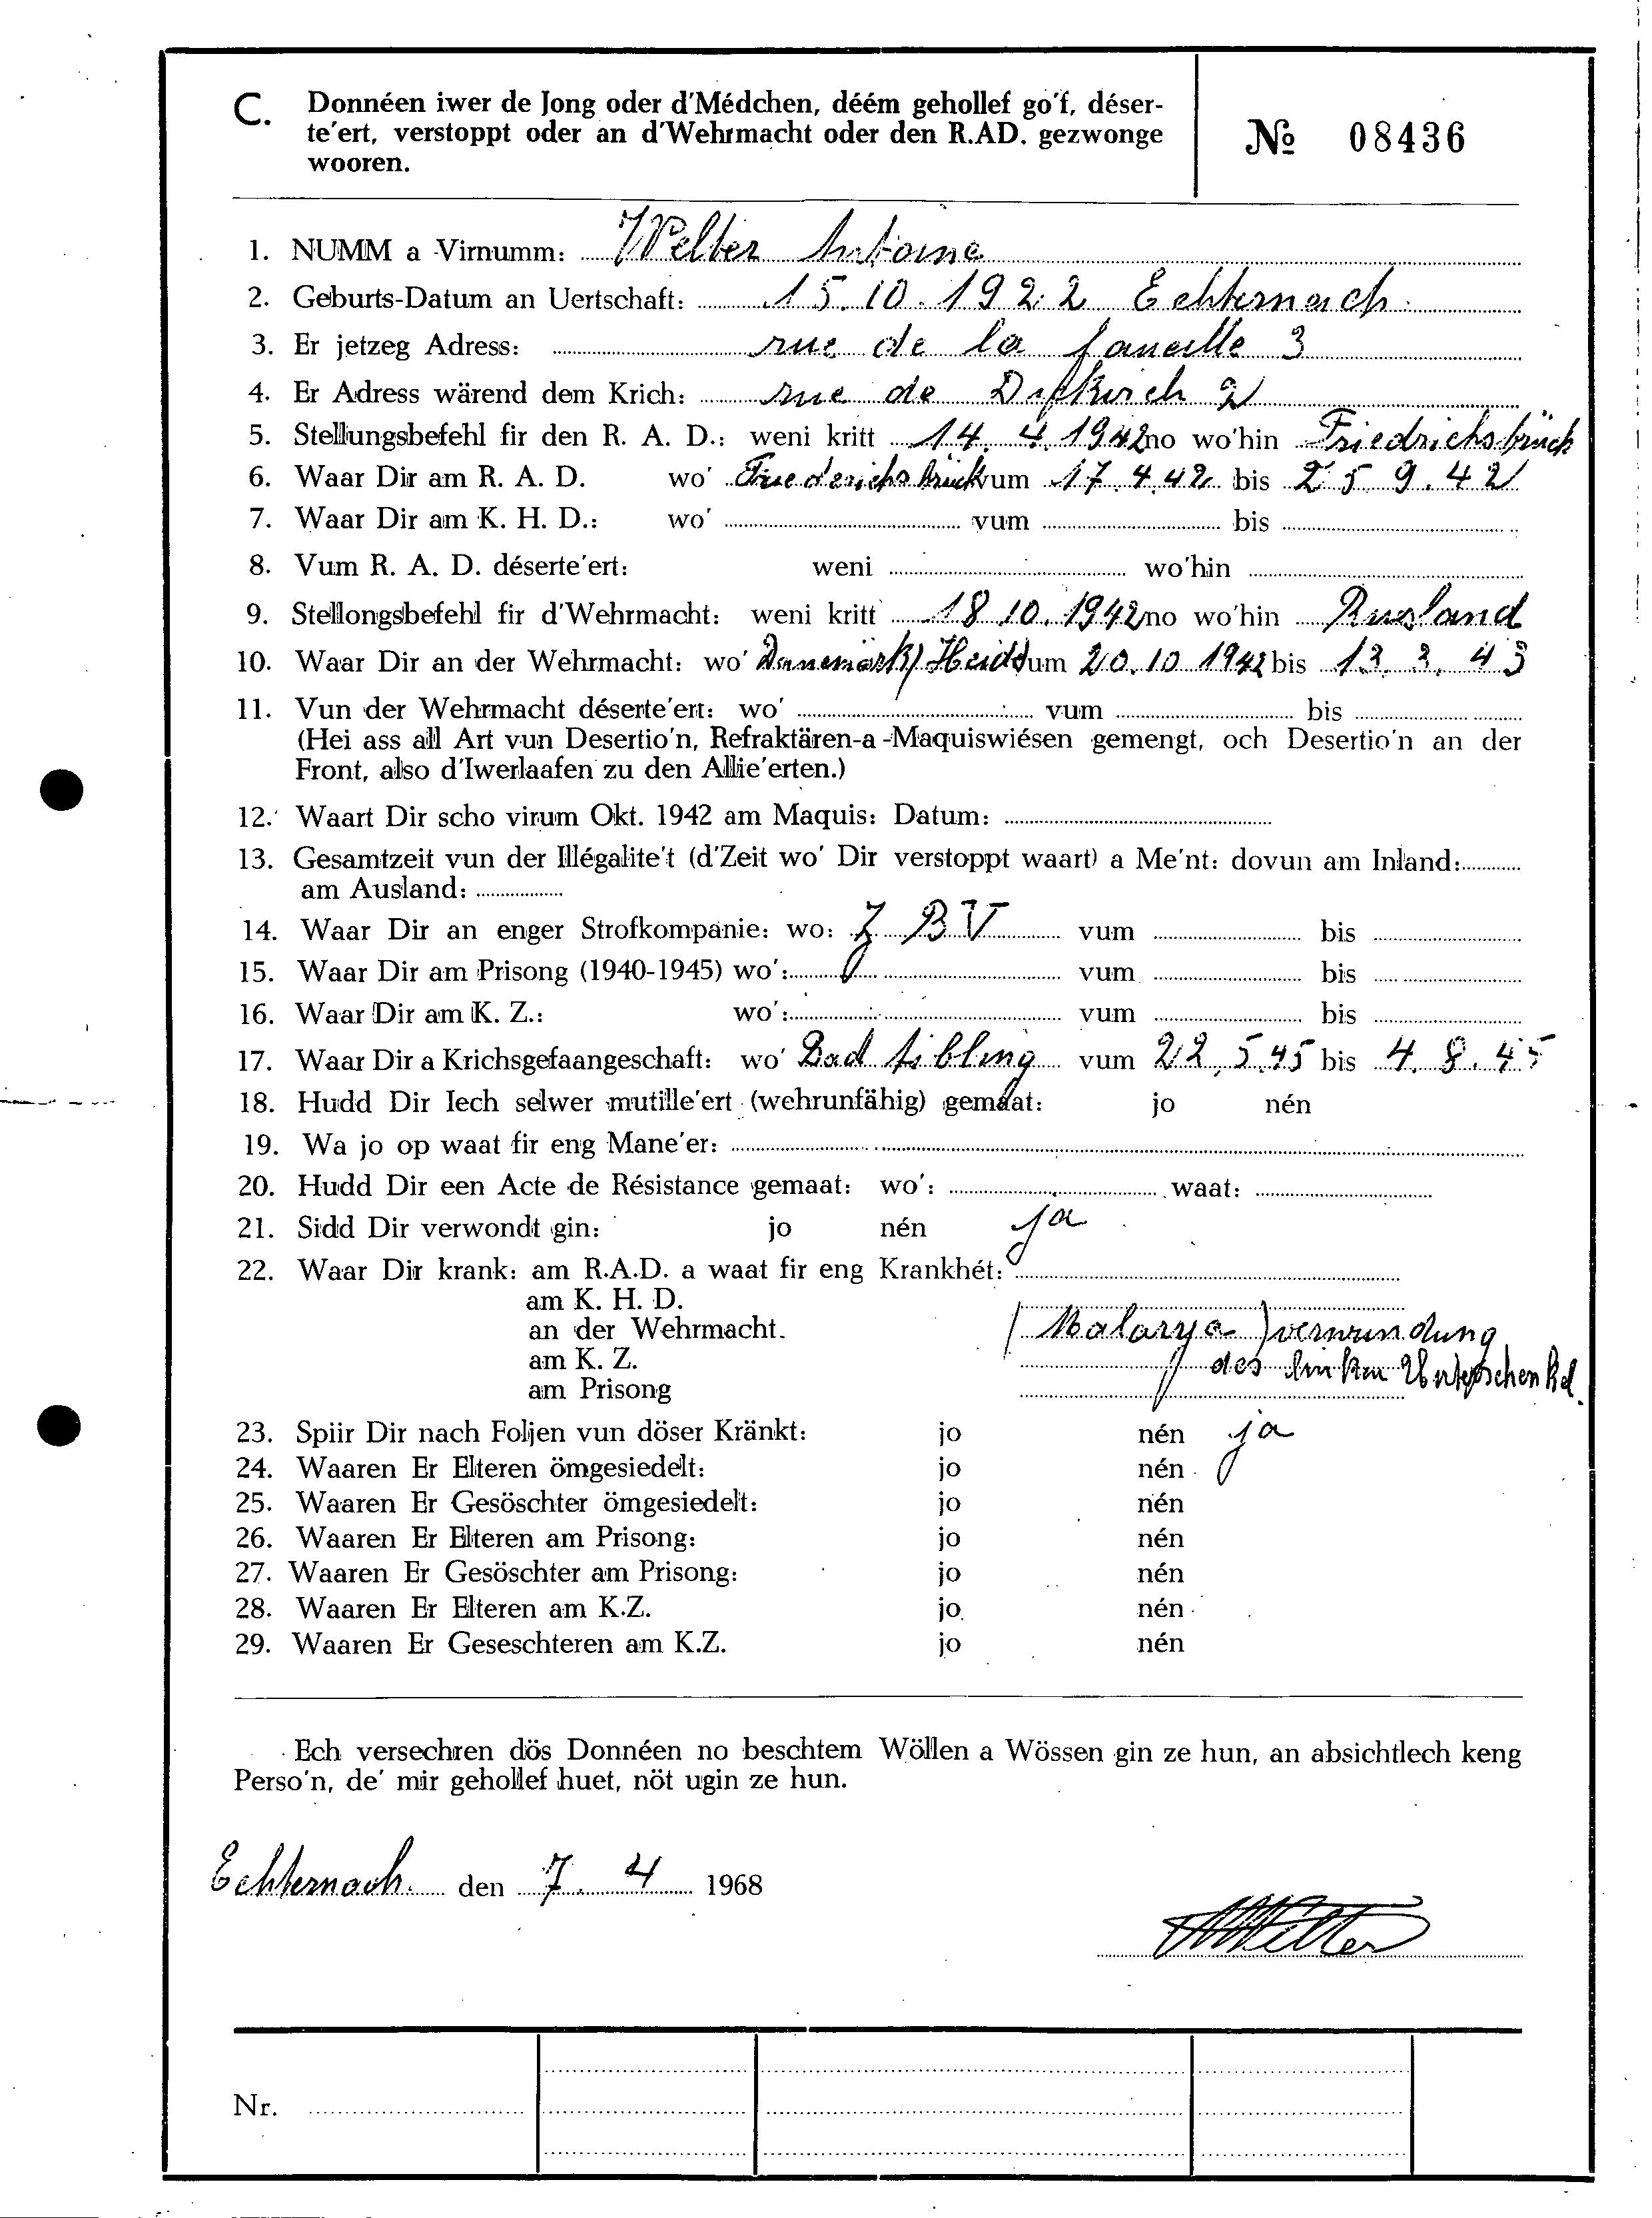 C. Donnéen iwer de Jong oder d'Médchen, déém gehollef go'f, déser-
te'ert, verstoppt oder an d'Wehrmacht oder den R.AD. gezwonge
wooren.
№ 08436
1. NUMM a Virnumm: Welter Antoine
2. Geburts-Datum an Uertschaft: 15.10.1922 Echternach
3. Er jetzeg Adress: rue de la 3
4. Er Adress wärend dem Krich: rue de 2
5. Stellungsbefehl fir den R. A. D.: weni kritt 14.4.1942 no wo'hin Friedrichsbrück
6. Waar Dir am R. A. D. wo' Friederichsbrück vum 17.4.42 bis 25 9.42
7. Waar Dir am K. H. D.: wo' vum bis
8. Vum R. A. D. déserte'ert: weni wo'hin
9. Stellongsbefehl fir d'Wehrmacht: weni kritt 18.10.1942 no wo'hin Rusland
10. Waar Dir an der Wehrmacht: wo' Danemark/ vum 20.10 1942 bis 13. 3. 43
11. Vun der Wehrmacht déserte'ert: wo' vum bis
(Hei ass all Art vun Desertio'n, Refraktären-a-Maquiswiésen gemengt, och Desertio'n an der
Front, also d'Iwerlaafen zu den Allie'erten.)
12. Waart Dir scho virum Okt. 1942 am Maquis: Datum:
13. Gesamtzeit vun der Illégalite't (d'Zeit wo' Dir verstoppt waart) a Me'nt: dovun am Inland:
am Ausland:
14. Waar Dir an enger Strofkompanie: wo: Z B V vum bis
15. Waar Dir am Prisong (1940-1945) wo': vum bis
16. Waar Dir am K. Z.: wo': vum bis
17. Waar Dir a Krichsgefaangeschaft: wo' Bad Aibling vum 22.5.45 bis 4.8.45
18. Hudd Dir Iech selwer mutille'ert (wehrunfähig) gemaat: jo nén
19. Wa jo op waat fir eng Mane'er:
20. Hudd Dir een Acte de Résistance gemaat: wo': waat:
21. Sidd Dir verwondt gin: jo nén ja
22. Waar Dir krank: am R.A.D. a waat fir eng Krankhét:
am K. H. D.
an der Wehrmacht. (Malarya) verwundung
am K. Z. des linken
am Prisong
23. Spiir Dir nach Foljen vun döser Kränkt: jo nén ja
24. Waaren Er Elteren ömgesiedelt: jo nén
25. Waaren Er Gesöschter ömgesiedelt: jo nén
26. Waaren Er Elteren am Prisong: jo nén
27. Waaren Er Gesöschter am Prisong: jo nén
28. Waaren Er Elteren am K.Z. jo nén
29. Waaren Er Geseschteren am K.Z. jo nén
Ech versechren dös Donnéen no beschtem Wöllen a Wössen gin ze hun, an absichtlech keng
Perso'n, de' mir gehollef huet, nöt ugin ze hun.
Echternach den 7. 4 1968
AWelter
Nr.